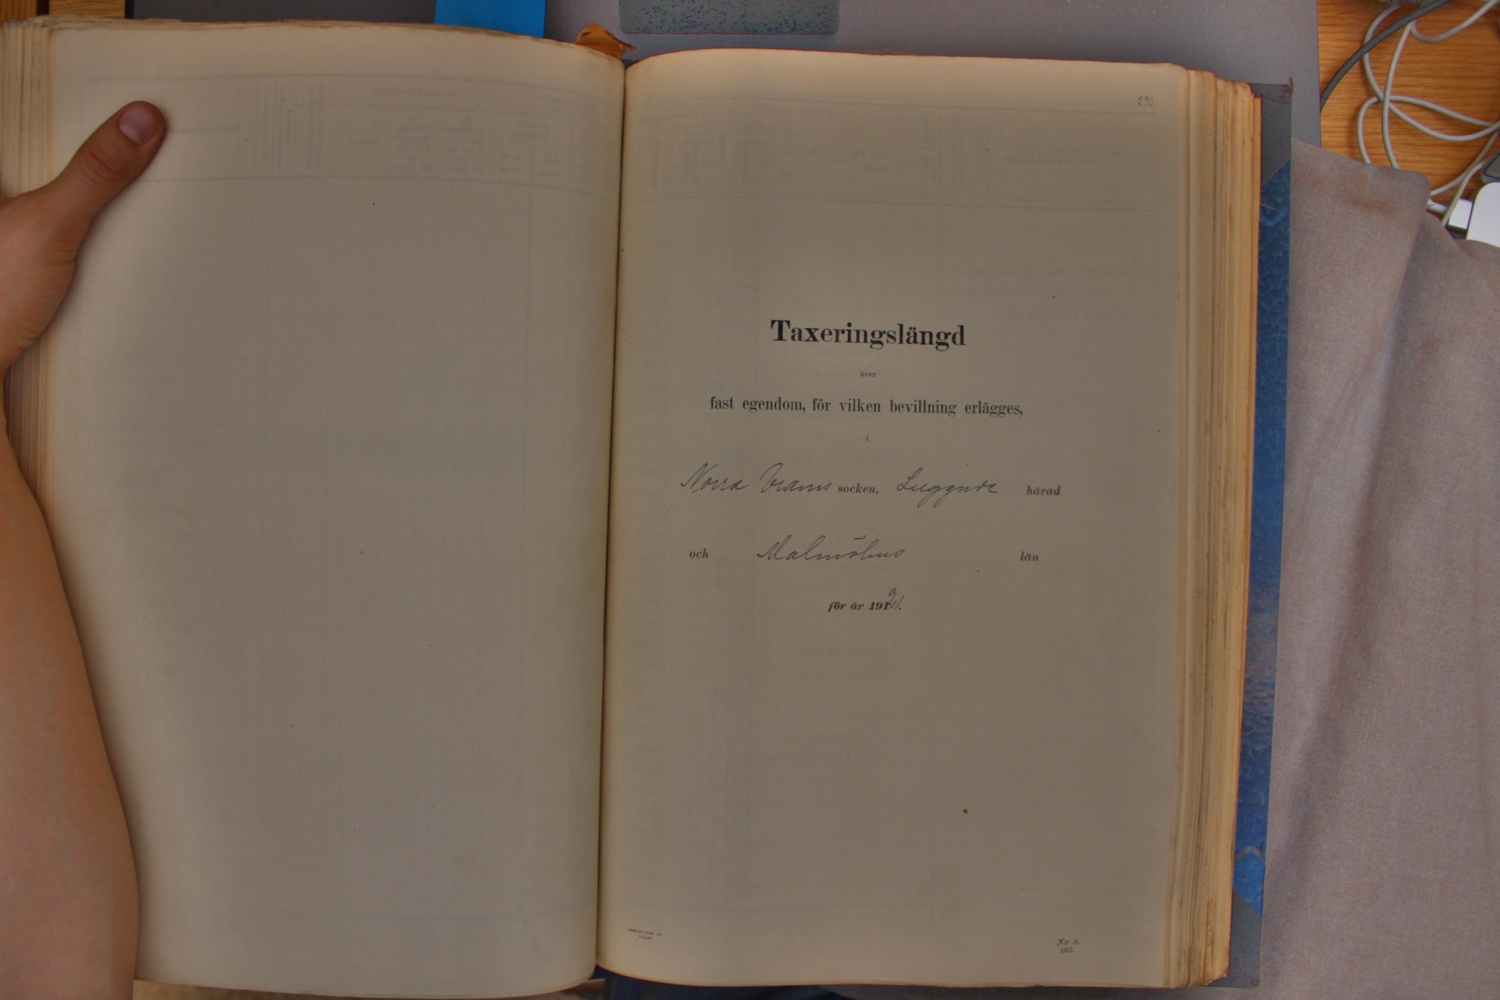 290.
Taxeringslängd
över
fast egendom, för vilken bevillning erlägges,
i
Norra Vrams socken, Luggude härad
och Malmöhus län
för år 1921.
Nr 3.
1917.